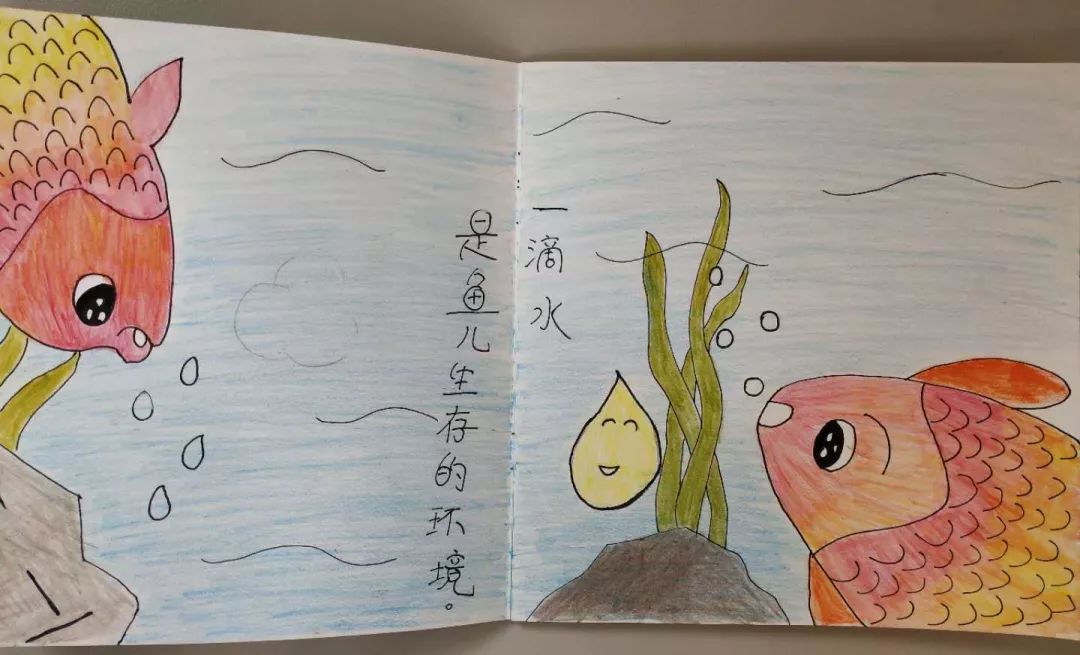 一滴水
是鱼儿生存的环境。